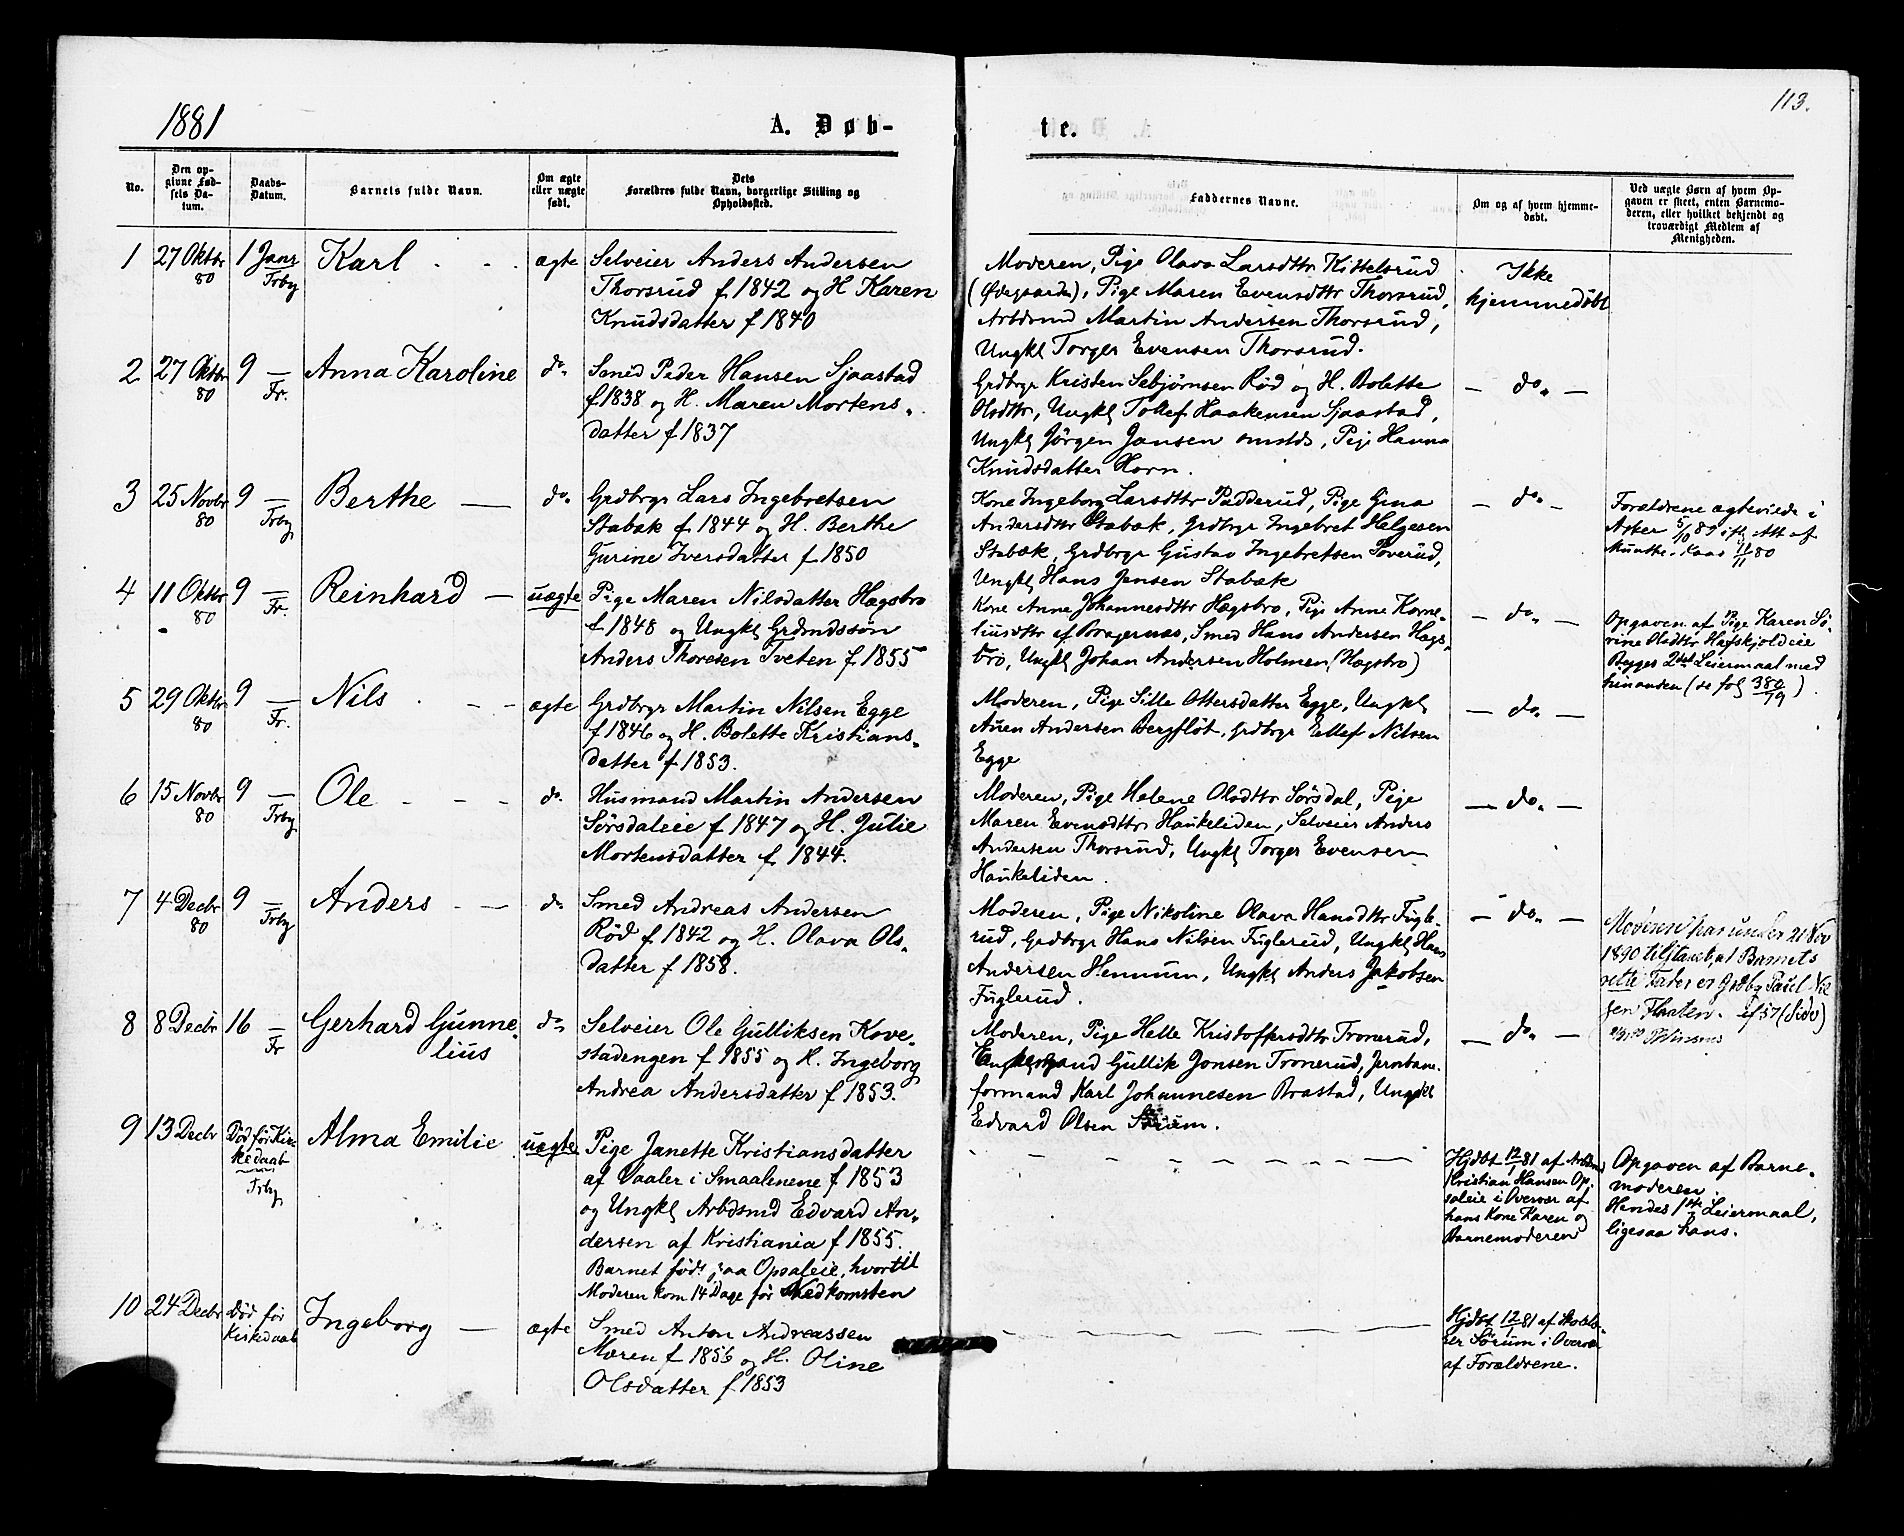 1881
A. Døb-
te.
113.
No.
Den op-
givne Fød-
sels Da-
tum.
Daabs-
Datum.
Barnets fulde Navn.
Om ægte
eller uægte
født.
Dets
Forældres fulde Navn, borgerlige Stilling og
Opholdssted.
Faddernes Navne.
Om og af hvem hjemme-
døbt.
Ved uægte Børn af hvem Op-
gaven er skeet, enten Barnemo-
deren, eller hvilket bekjendt og
troværdigt Medlem af
Menigheden.
1
27 Oktbr
80
1 Janr
Frby
Karl
ægte
Selveier Anders Andersen
Thorsrud f 1842 og H Karen
Knudsdatter f 1840
Moderen, Pige Olava Larsdttr Kittelsrud
(Ødegaarden), Pige Maren Evensdttr Thorsrud,
Arbdsmd Martin Andersen Thorsrud,
Ungkl Torger Evensen Thorsrud.
Ikke
hjemmedøbt
2
27 Oktbr
80
9 —
Fr.
Anna Karoline
do.
Smed Peder Hansen Sjaastad
f 1838 og H. Maren Mortens-
datter f 1837
Grdbrgr Kristen Sebjørnsen Rød og H. Bolette
Olsdttr, Ungkl Tollef Haakensen Sjaastad,
Ungkl Jørgen Jansen omstds, Pige Hanna
Knudsdatter Horn.
— do. —
3
25 Novbr
80
9 —
Frby
Berthe —
do.
Grdbrgr Lars Ingebretsen
Stabæk f 1844 og H. Berthe
Gurine Iversdatter f 1850
Kone Ingeborg Larsdttr Padderud, Pige Gina
Andersdttr Stabæk, Grdbrgr Ingebret Helgesen
Stabæk, Grdbrgr Gustav Ingebretsen Poverud,
Ungkl Hans Jensen Stabæk
— do. —
Forældrene ægteviede i
Asker 5/10 80 ifl. Att af
Munthe-Kaas 11/11 80
4
11 Oktbr
80
9 —
Fr.
Reinhard —
uægte
Pige Maren Nilsdatter Hægsbro
f 1848 og Ungkl Grdmdssøn
Anders Thoresen Tveten f 1855
Kone Anne Johannesdttr Hægsbro, Pige Anne Korne-
liusdttr af Bragernæs, Smed Hans Andersen Hægs-
bro, Ungkl Johan Andersen Holmen (Hægsbro)
— do. —
Opgaven af Pige Karen Sø-
rine Olsdttr Hafskjoldeie
Begges 2det Leiermaal med
hinanden (se fol 380/79).
5
29 Oktbr
80
9 —
Fr.
Nils
ægte
Grdbrgr Martin Nilsen Egge
f 1846 og H. Bolette Kristians-
datter f 1853.
Moderen, Pige Sille Ottersdatter Egge, Ungkl
Auen Andersen Bergfløt, Grdbrgr Ellef Nilsen
Egge
— do. —
6
15 Novbr
80
9 —
Frby
Ole
do.
Husmand Martin Andersen
Sørsdaleie f 1847 og H. Julie
Mortensdatter f 1844.
Moderen, Pige Helene Olsdttr Sørsdal, Pige
Maren Evensdttr Haukeliden, Selveier Anders
Andersen Thorsrud, Ungkl Torger Evensen
Haukeliden.
— do. —
7
4 Decbr
80
9 —
Frby
Anders
do.
Smed Andreas Andersen
Rød f 1842 og H. Olava Ols-
datter f 1858.
Moderen, Pige Nikoline Olava Hansdttr Fugle-
rud, Grdbrgr Hans Nilsen Fuglerud, Ungkl Hans
Andersen Hennum, Ungkl Anders Jakobsen
Fuglerud.
— do. —
Moderen har under 21 Nov
1890 tilstaaet, at Barnets
rette Fader er Grdbg Paul Nil
sen Flaaten. f 57 (Sidv)
8
8 Decbr
16 —
Fr
Gerhard Gunne-
lius
do.
Selveier Ole Gulliksen Kove-
stadengen f 1855 og H. Ingeborg
Andrea Andersdatter f 1853.
Moderen, Pige Helle Kristoffersdttr Tronerud,
Gullik Jonsen Tronerud, Jernbane-
formand Karl Johannesen Brastad, Ungkl
Edvard Olsen
— do. —
9
13 Decbr
Død før Kir-
kedaab
Frby
Alma Emilie
uægte
Pige Janette Kristiansdatter
af Vaaler i Smaalenene f 1853
og Ungkl Arbdsmd Edvard An-
dersen af Kristiania f 1855.
Barnet født paa Opsaleie, hvortil
Moderen kom 14 Dage før Nedkomsten
Hjdbt 12/1 81 af Arbdsmd
Kristian Hansen Op-
saleie i Overvær af
hans Kone Karen og
Barnemoderen
Opgaven af Barne-
moderen.
Hendes 1ste Leiermaal,
ligesaa hans.
10
24 Decbr
Død før
Kirkedaab
Ingeborg —
ægte
Smed Anton Andreassen
Mæren f 1856 og H. Oline
Olsdatter f 1853
Hjdbt 12/1 81 af Skolelæ-
rer Sørum i Overvær
af Forældrene.